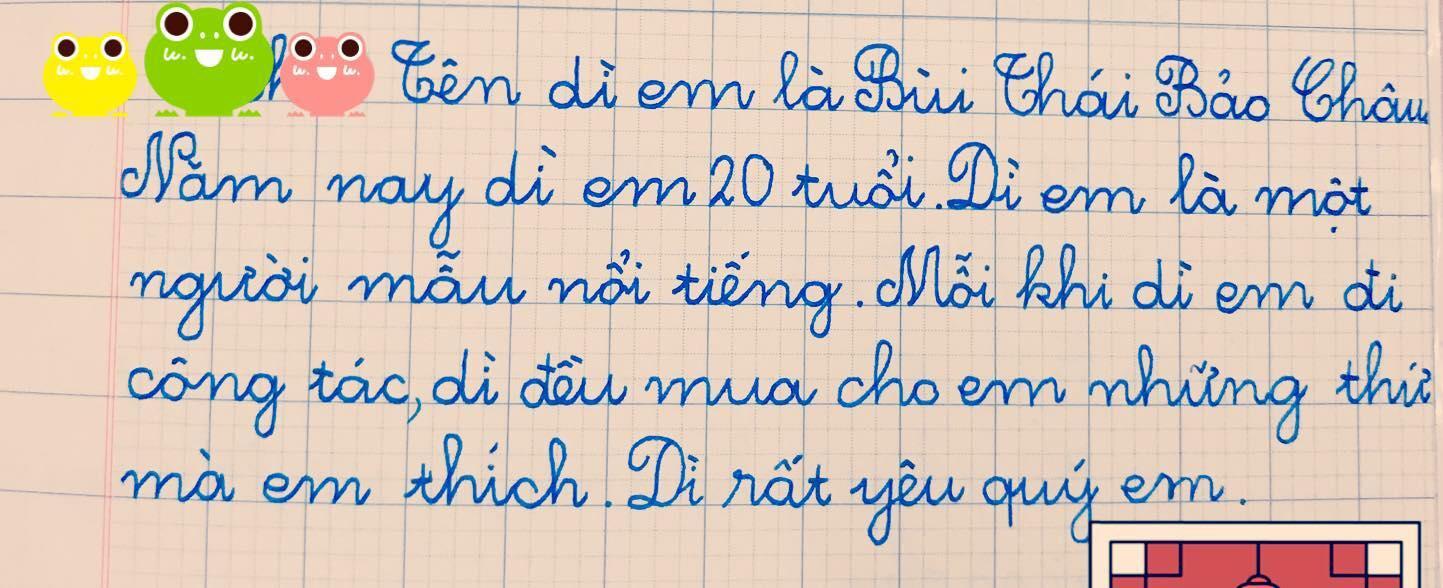 Tên dì em là Bùi Thái Bảo Châu
Năm nay dì em 20 tuổi. Dì em là một
người mẫu nổi tiếng. Mỗi khi dì em đi
công tác, dì đều mua cho em những thứ
mà em thích. Dì rất yêu quý em.